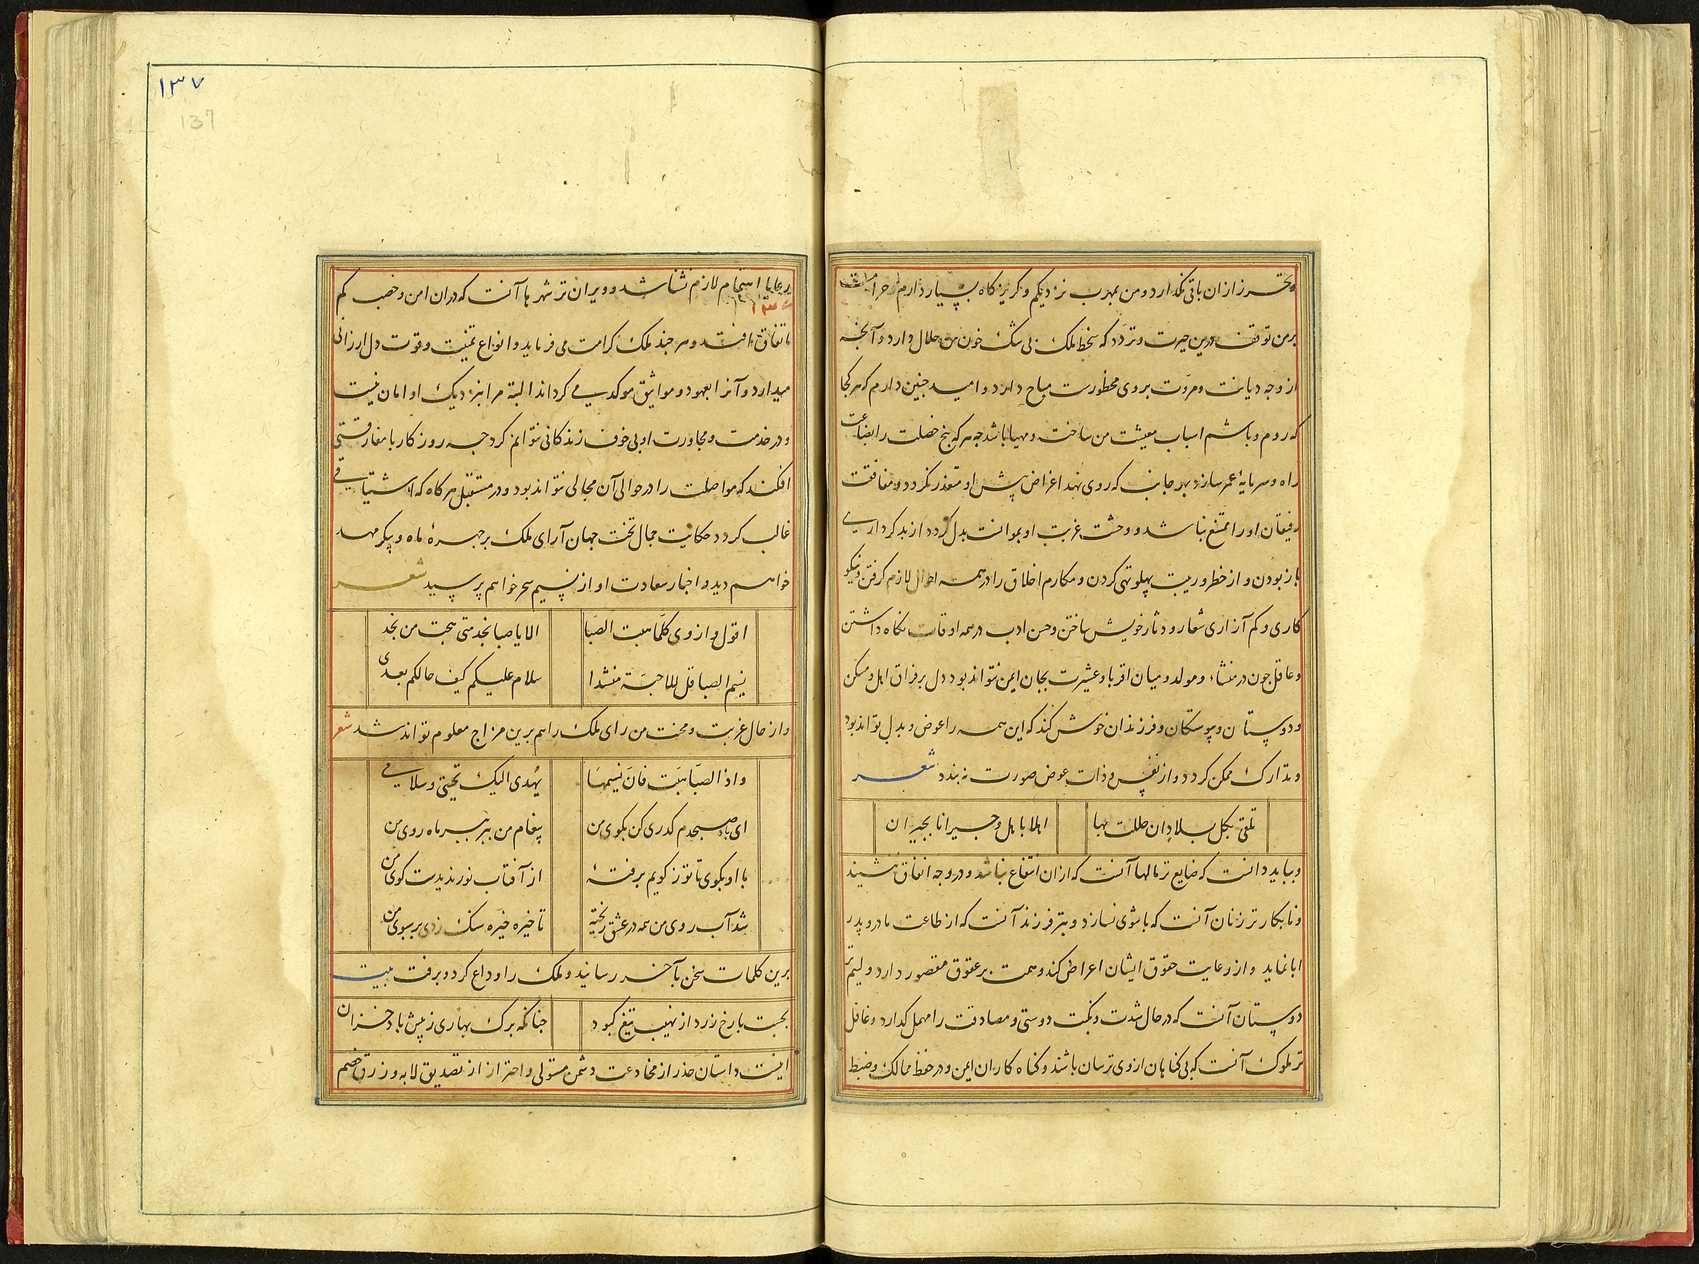 تحرز ازان باقی نگذارد و من بمهرب نزدیکم و گریزگاه بسیار دارم و حرامست
بر من توقف درین حیرت و تردد که سخط ملک بی شک خون من حلال دارد و آنچه
از وجه دیانت و مروت بر وی محظورست مباح دارد و امید چنین دارم که هر کجا
که روم و باشم اسباب معیشت من ساخته و مهیا باشد چه هر که پنج خصلت را بضاعت
راه و سرمایهٔ عمر سازد بهر جانب که روی نهد اغراض پیش او متعذر نگردد و مرافقت
رفیقان او را ممتنع نباشد و وحشت غربت او بموانست بدل گردد از بدکرداری
باز بودن و از خطر و ریبت پهلو تهی کردن و مکارم اخلاق را در همه احوال لازم گرفتن و نیکو
کاری و کم آزاری شعار و دثار خویش ساختن و حسن ادب در همه اوقات نگاه داشتن
و عاقل چون در منشاء و مولد و میان اقربا و عشیرت بجان ایمن نتواند بود دل بر فراق اهل و مسکن
و دوستان و پیوستگان و فرزندان خوش کند که این همه را عوض و بدل تواند بود
و تدارک ممکن گردد و از نفس و ذات عوض صورت نه بندد شعر
تلقی بکل بلاد ان حللت بها اهلا باهل و جیرانا بجیران
و بباید دانست که ضایع تر مالها آنست که ازان انتفاع نباشد و در وجه انفاق ننشیند
و نابکارتر زنان آنست که با شوی نسازد و بتر فرزند آنست که از طاعت مادر و پدر
ابا نماید و از رعایت حقوق ایشان اعراض کند و همت بر عقوق مقصور دارد و لئیم‌تر
دوستان آنست که در حال شدت و نکبت دوستی و مصادقت را مهمل گذارد و غافل
تر ملوک آنست که بی گناهان از وی ترسان باشند و گناه کاران ایمن و در حفظ ممالک و ضبط
۱۳۷
137
رعایا اهتمام لازم نشناسد و ویران تر شهرها آنست که دران امن و خصب کم
۱۳۶
اتفاق افتد و هر چند ملک کرامت می فرماید و انواع تمنیت و قوت دل ارزانی
میدارد و آنرا بعهود و مواثیق موکد می گرداند البته مرا بنزدیک او امان نیست
و در خدمت و مجاورت او بی خوف زندگانی نتوانم کرد چه روزگار با مفارقتی
افکند که مواصلت را در حوالی آن مجالی نتواند بود و در مستقبل هر گاه که اشتیاقی
غالب گردد حکایت جمال تخت جهان آرای ملک بر چهرهٔ ماه و پیکر مهر
خواهم دید و اخبار سعادت او از نسیم سحر خواهم پرسید شعر
اقول و ازوی کلما هبت الصبا الا یا صبا نجد متی هجت من نجد
نسیم الصبا قل للاحبة منشدا سلام علیکم کیف حالکم بعدی
و از حال غربت و محنت من رای ملک را هم برین مزاج معلوم تواند شد شعر
و اذا الصبا هبت فان نسیمها یهدی الیک تحیتی و سلامی
ای باد صبحدم گذری کن بکوی من پیغام من ببر ببر ماه روی من
با او بگوی تا تو ز کویم برفتهٔ از آفتاب نور ندیدست کوی من
شد آب روی من همه در عشق ریخته تا خیره خیره سنگ زدی بر سبوی من
برین کلمات سخن بآخر رسانید و ملک را وداع کرد و برفت بیت
بجست با رخ زرد از نهیب تیغ کبود چنانکه برگ بهاری ز پیش باد خزان
اینست داستان حذر از مخادعت دشمن مستولی و احتراز از تصدیق لابه و زرق خصم